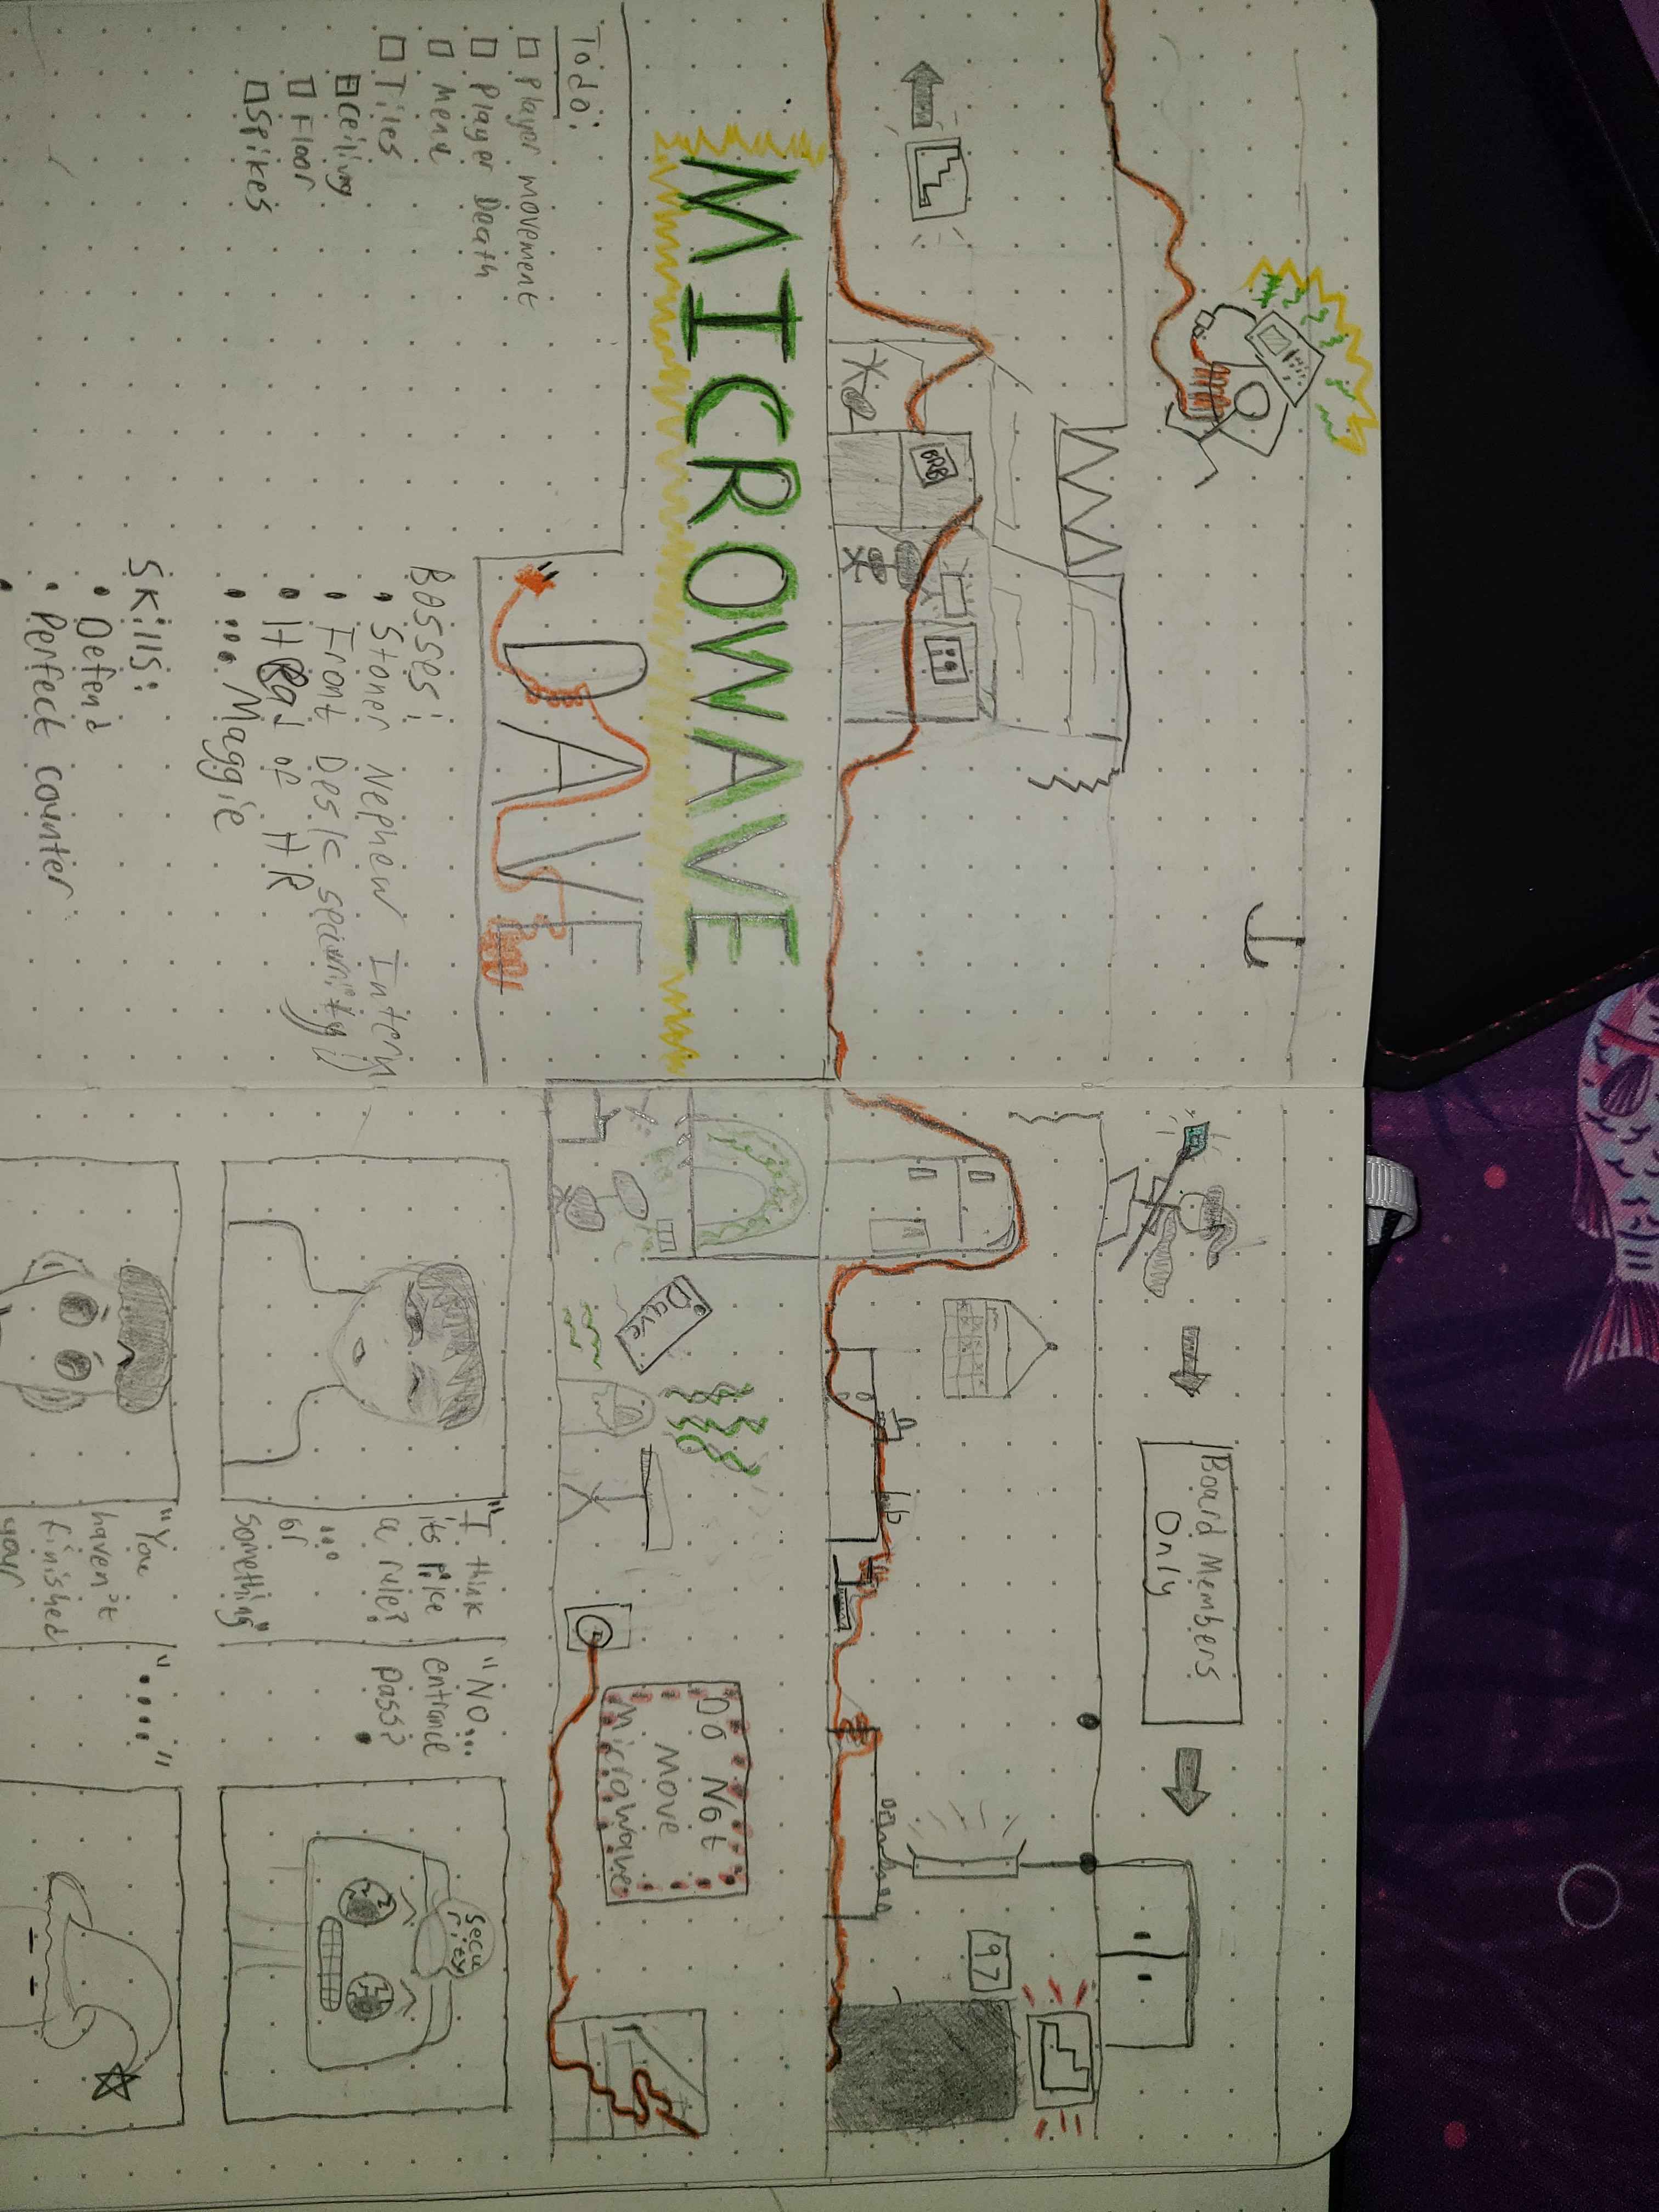 BRB
MICROWAVE
DAVE
Todo:
Player movement
Player Death
Menu
Tiles
Ceiling
Floor
Spikes
Bosses:
Stoner Nephew Intern
Front Desk security
of HR
... Maggie
Skills:
Defend
Perfect counter
Board Members
Only
97
Dave
Do Not
Move
Microwave
"I think
its
a rule?
...
or
something"
"No...
entrance
pass?
Secu
rity
"You
haven't
finished
your
"....."